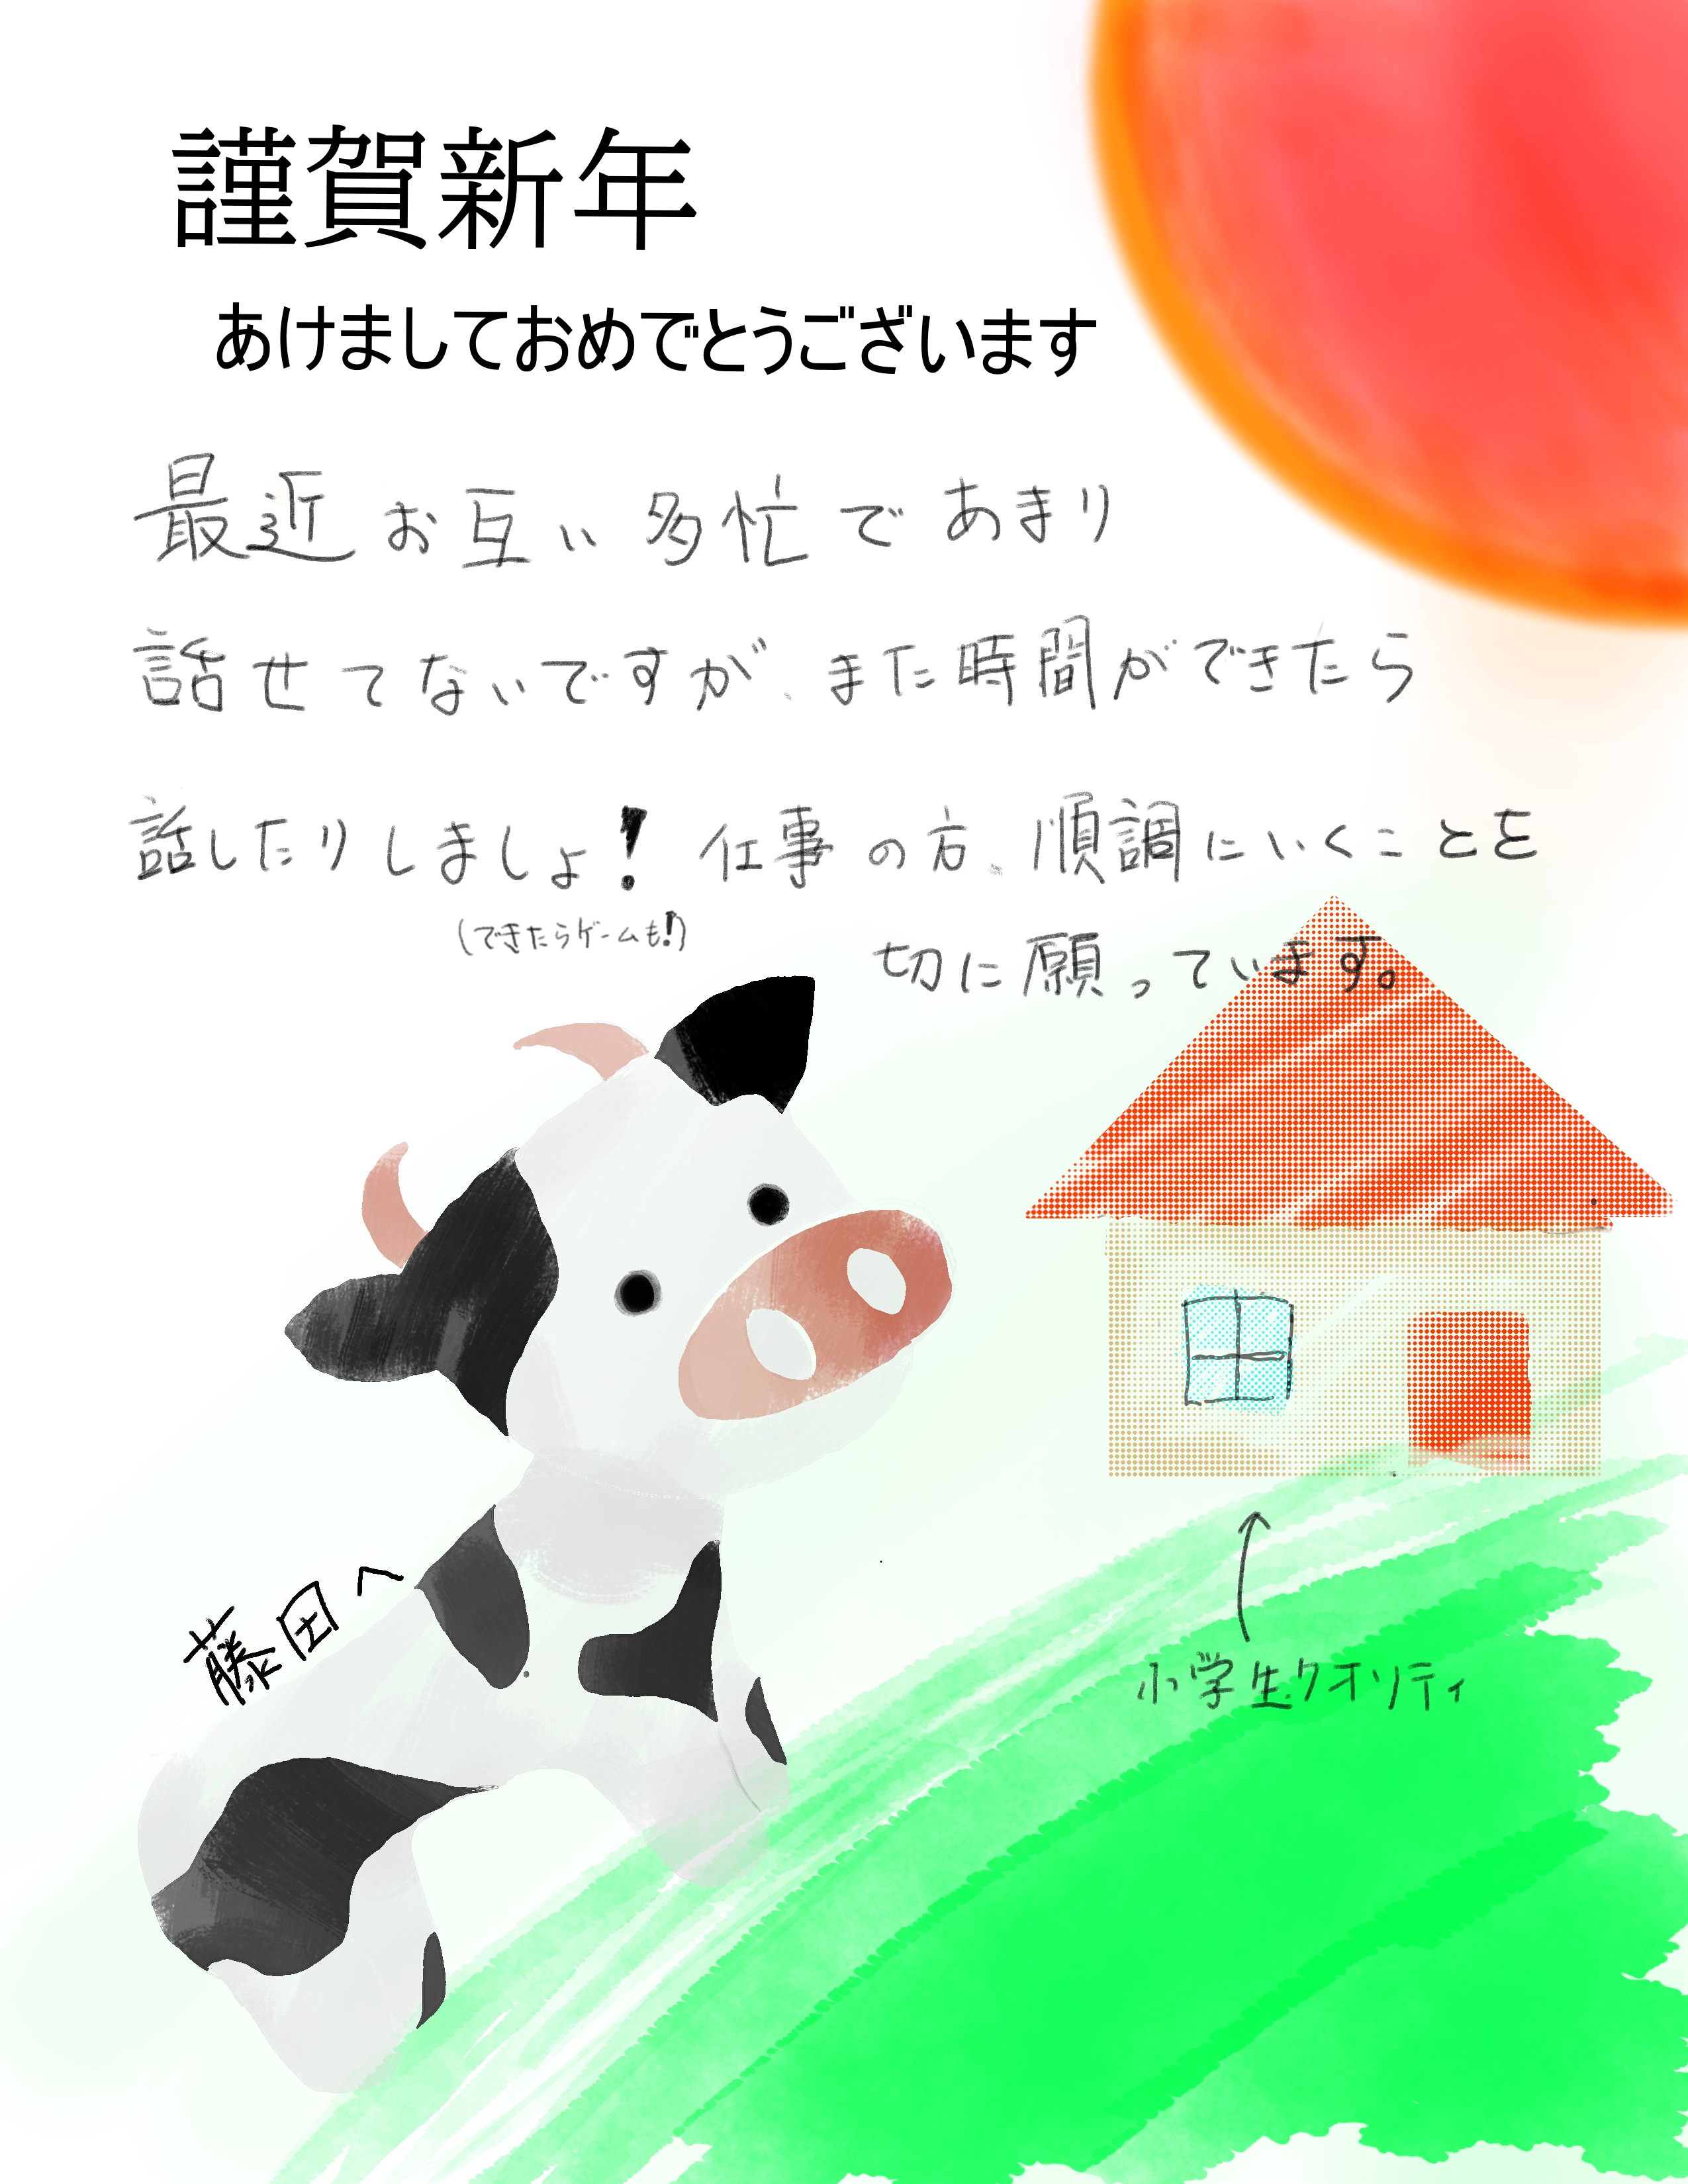 謹賀新年
あけましておめでとうございます
最近お互い多忙であまり
話せてないですが、また時間ができたら
話したりしましょ！仕事の方、順調にいくことを
(できたらゲームも!)
切に願っています。
藤田へ
小学生クオリティ